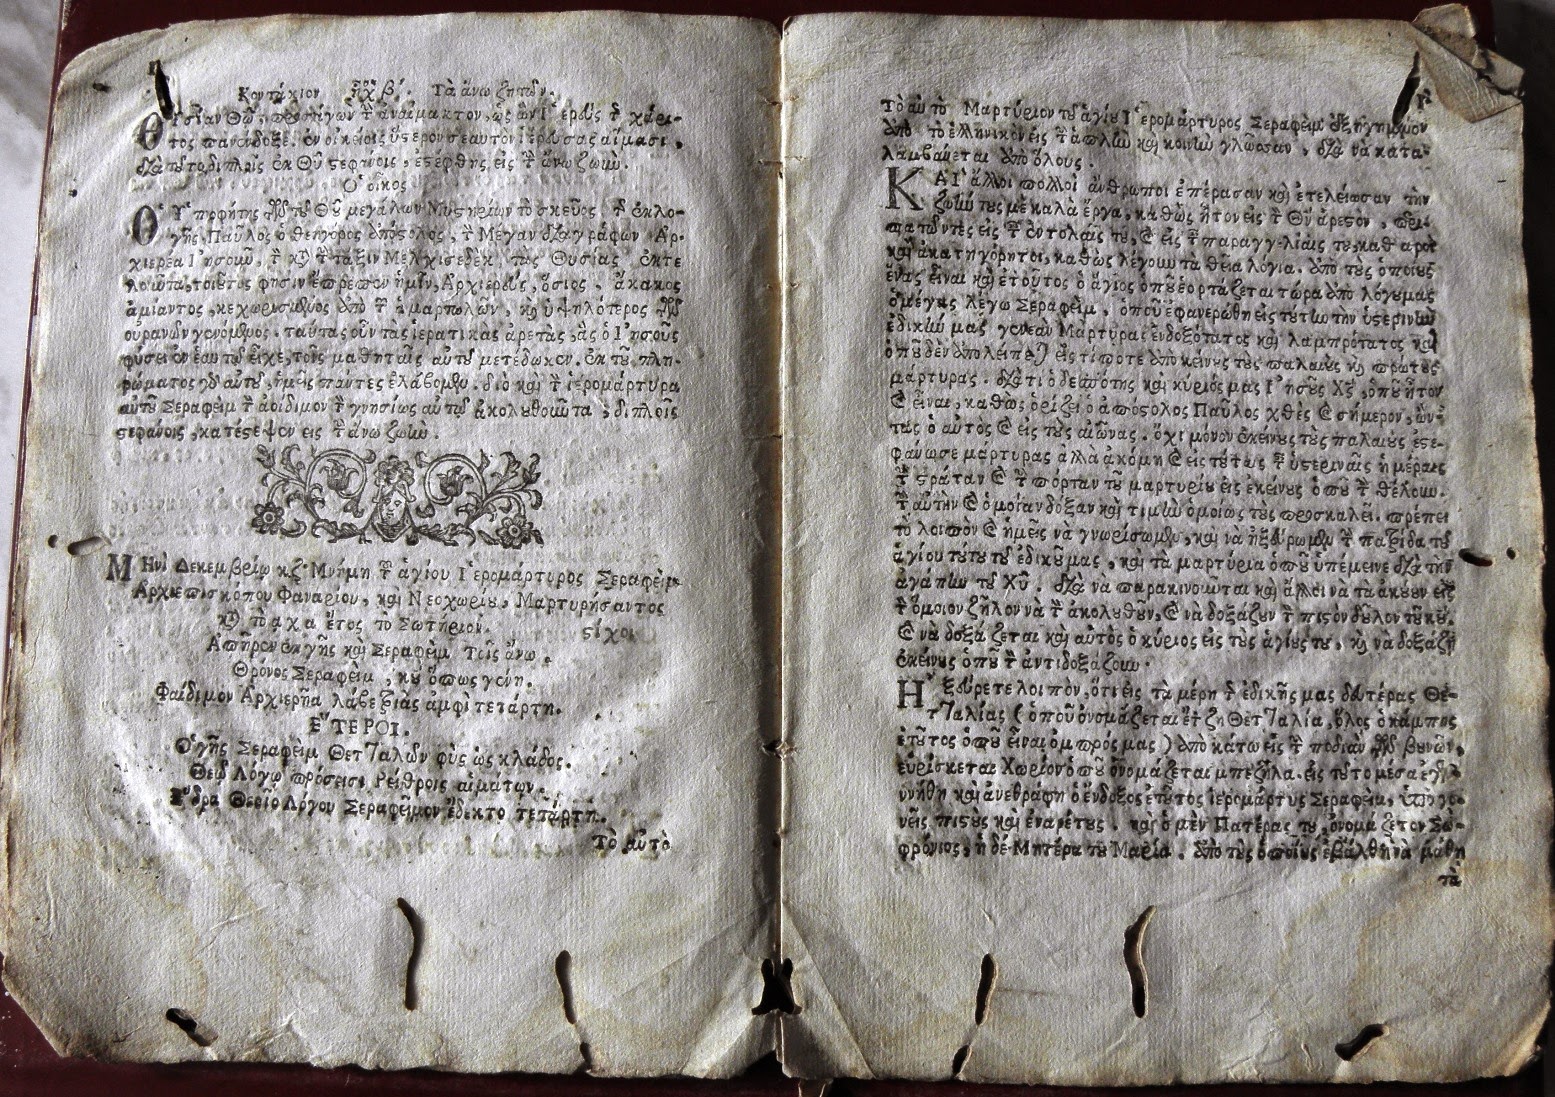 Κοντάκιον ἦχος β΄. Τὰ ἄνω ζητῶν.
ΘΥσίαν Θῷ, προσάγων τὴν ἀναίμακτον, ὡς ὢν Ἱερεὺς τῆς χάρι-
τος πανένδοξε. ἐν οἰκείοις ὕστερον σεαυτὸν ἱέρευσας αἵμασι,
διὰ τοῦτο διπλοῖς ἐκ Θῦ στεφάνοις, ἐστέφθης εἰς τὴν ἄνω ζωήν.
Ὁ οἶκος
Ὁ Ὑποφήτης τῶν τοῦ Θῦ μεγάλων Μυστηρίων τὸ σκεῦος τῆς ἐκλο-
γῆς, Παῦλος ὁ θεηγόρος ἀπόστολος, τὸν Μέγαν διαγράφων Ἀρ-
χιερέα Ἰησοῦν, τὸν κατὰ τὴν τάξιν Μελχισεδὲκ τὰς Θυσίας ἐκτε
λοῦντα, τοιοῦτος φησὶν ἔπρεπεν ἡμῖν, Ἀρχιερεὺς, ὅσιος, ἄκακος
ἀμίαντος, κεχωρισμένος ἀπὸ τῶν ἁμαρτωλῶν, καὶ ὑψηλότερος τῶν
οὐρανῶν γενόμενος. ταύτας οὖν τὰς ἱερατικὰς ἀρετὰς, ἃς ὁ Ἰησοῦς
φύσει ἐν ἑαυτῷ εἶχε, τοῖς μαθηταῖς αὐτοῦ μετέδωκεν. ἐκ τοῦ πλη-
ρώματος γὰρ αὐτοῦ, ἡμεῖς πάντες ἐλάβομεν. διὸ καὶ τὸν ἱερομάρτυρα
αὐτοῦ Σεραφεὶμ τὸν ἀοίδιμον τὸν γνησίως αὐτῷ ἀκολουθοῦντα, διπλοῖς
στεφάνοις, κατέστεψεν εἰς τὴν ἄνω ζωήν.
ΜΗνὶ Δεκεμβρίῳ κζ. Μνήμη τοῦ ἁγίου Ἱερομάρτυρος Σεραφεὶμ
Ἀρχιεπισκόπου Φαναρίου, καὶ Νεοχωρίου, Μαρτυρήσαντος
κατὰ τὸ αχα ἔτος τὸ Σωτήριον. στίχοι
Ἀπῆρεν ἐκ γῆς καὶ Σεραφεὶμ Τίις ἄνω,
Θρόνος Σεραφεὶμ, κᾳ ὅπως γένῃ.
Φαίδιμον Ἀρχιερῆα λάβε ξιὰς ἀμφὶ τετάρτῃ.
ΕΤΕΡΟΙ.
Ὁ γῆς Σεραφεὶμ Θετταλῶν φὺς ὡς κλάδος.
Θεῷ Λόγῳ πρόσεισι, Ρείθροις αἱμάτων.
Ἕδρα Λόγου Σεραφεῖμον ἔδεκτο τετάρτῃ.
Τὸ αὐτὸ
Τὸ αὐτὸ Μαρτύριον τοῦ ἁγίου Ἱερομάρτυρος Σεραφεὶμ ἐξηγημένον
ἀπὸ τὸ ἑλληνικὸν εἰς τὴν ἁπλῶν καὶ κοινὼ γλῶσσαν, διὰ νὰ κατα-
λαμβάνεται ἀπὸ ὅλους.
ΚΑὶ ἄλλοι πολλοὶ ἄνθρωποι ἐπέρασαν καὶ ἐτελείωσαν τὴν
ζωὴν τους μὲ καλὰ ἔργα, καθὼς ἦτον εἰς τὸν Θὺ ἀρεστὸν, περι-
πατῶντες εἰς τὰς ἐντολαῖς του, καὶ εἰς τὰς παραγγελίαις του, καθαροὶ
καὶ ἀκατηγόρητοι, καθὼς λέγουν τὰ θεῖα λόγια. ἀπὸ τοὺς ὁποίους
ἕνας εἶναι καὶ ἐτοῦτος ὁ ἅγιος ὁποῦ ἑορτάζεται τώρα ἀπὸ λόγου μας
ὁ μέγας λέγω Σεραφεὶμ, ὁποῦ ἐφανερώθη εἰς τούτην τὴν ὑστερινὴν
ἐδικήν μας γενεὰν Μάρτυρας ἐνδοξότατος καὶ λαμπρότατος καὶ
ὁποῦ δὲν ἀπολείπεται εἰς τίποτε ἀπὸ κείνους τοὺς παλαιοὺς καὶ πρώτους
μάρτυρας. διατὶ ὁ δεσπότης καὶ κύριός μας Ἰησοῦς Χς, ὁποῦ ἦτον
καὶ εἶναι, καθὼς ὁρίζει ὁ ἀπόστολος Παῦλος χθὲς καὶ σήμερον, ὤν-
τας ὁ αὐτὸς καὶ εἰς τοὺς αἰῶνας. ὄχι μόνον ἐκείνους τοὺς παλαιοὺς ἐστε-
φάνωσε μάρτυρας ἀλλὰ ἀκόμη καὶ εἰς τούταις τὰς ὑστεριναῖς ἡμέραις
τὴν στράταν καὶ τὴν πόρταν τοῦ μαρτυρίου εἰς ἐκείνους ὁποῦ τὴν θέλουν.
τὴν αὐτὴν καὶ ὁμοίαν δόξαν καὶ τιμὴν ὁμοίως τοὺς προσκαλεῖ. πρέπει
τὸ λοιπὸν καὶ ἡμεῖς νὰ γνωρίσωμεν, καὶ νὰ ἠξεύρωμεν τὴν πατρίδα τοῦ
ἁγίου τούτου τοῦ ἐδικοῦ μας, καὶ τὰ μαρτύρια ὁποῦ ὑπέμεινε διὰ τὴν
ἀγάπην τοῦ Χῦ. διὰ νὰ παρακινοῦνται καὶ ἄλλοι νὰ τὰ ἀκούουν εἰς
τὸν ὅμοιον ζῆλον νὰ τὸν ἀκολουθοῦν, καὶ νὰ δοξάζουν τὸν πιστὸν δοῦλον τοῦ κυ.
καὶ νὰ δοξάζεται καὶ αὐτὸς ὁ κύριος εἰς τοὺς ἁγίους του, καὶ νὰ δοξάζῃ
ἐκείνους ὁποῦ τὸν ἀντιδοξάζουν.
Ἠξεύρετε λοιπὸν, ὅτι εἰς τὰ μέρη τῆς ἐδικῆς μας δευτέρας Θε-
τταλίας (ὁποῦ ὀνομάζεται ἔτζη Θετταλία, ὅλος ὁ κάμπος
ἐτοῦτος ὁποῦ εἶναι ὀμπρός μας) ἀπὸ κάτω εἰς τὴν ποδιὰν τῶν βουνῶν,
εὑρίσκεται Χωρίον ὁποῦ ὀνομάζεται μπεζήλα. εἰς τοῦτο μέσα ἐγε-
ννήθη καὶ ἀνεθράφη ὁ ἔνδοξος ἐτοῦτος ἱερομάρτυς Σεραφεὶμ, ἀπὸ γο-
νεῖς πιστοὺς καὶ ἐναρέτους. καὶ ὁ μὲν Πατέρας του, ὀνομάζετον Σω-
φρόνιος, ἡ δὲ Μητέρα του Μαρία. ἀπὸ τοὺς ὁποίους ἐβάλθη νὰ μάθῃ
τὰ